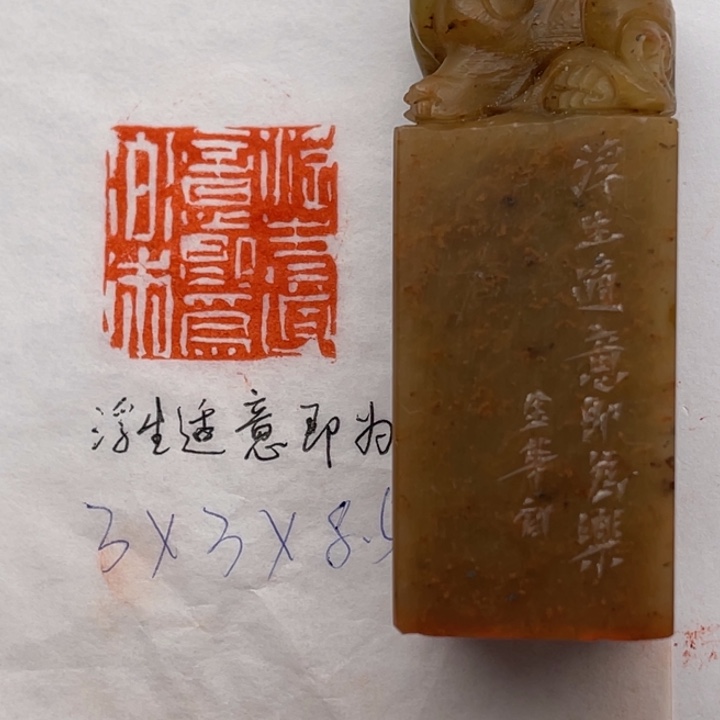 浮生適
意即為
樂
浮生适意即为
3×3×8.5
浮生適意即為樂